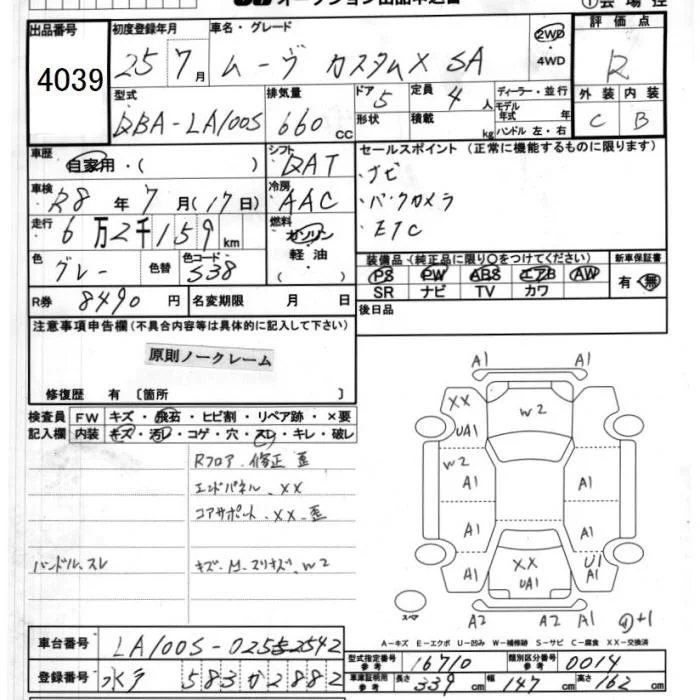 オークション出品申込書
①会場控
出品番号
4039
初度登録年月
25 7月
車名・グレード
ムーヴ カスタムX SA
2WD
・
4WD
評価点
R
型式
DBA-LA100S
排気量
660 cc
ドア
5
形状
定員
4 人
積載 kg
ディーラー・並行
モデル年式 年
ハンドル 左・右
外装
C
内装
B
車歴
自家用・( )
シフト
DAT
セールスポイント (正常に機能するものに限ります)
・ナビ
・バックカメラ
・ETC
車検
R8 年 7 月 (17日)
冷房
AAC
走行
6万2千159km
燃料
ガソリン
軽油
( )
色
グレー
色替
色コード
S38
装備品 (純正品に限り○をつけてください)
PS PW ABS エアB AW
SR ナビ TV カワ
新車保証書
有・無
R券 8490円
名変期限 月 日
後日品
注意事項申告欄 (不具合内容等は具体的に記入して下さい)
原則ノークレーム
修復歴 有 〔箇所 〕
検査員記入欄
FW キズ・飛石・ヒビ割・リペア跡・×要
内装 キズ・汚レ・コゲ・穴・スレ・キレ・破レ
Rフロア・修正 歪
エンドパネル・XX
コアサポート・XX・歪
ハンドル、スレ
キズ・M・スリキズ、W2
A1
A1
XX
UA1
W2
W2
A1
A1
A1
A1
A1
XX
UA1
U1
A1
A2
A2
スペア
A-キズ E-エクボ U-凹み W-補修跡 S-サビ C-腐食 XX-交換済
車台番号 LA100S-0255542
登録番号 水戸 583 か 2882
型式指定番号 参考 16710
類別区分番号 参考 0014
車庫証明用 参考 長さ 339 cm 幅 147 cm 高さ 162 cm